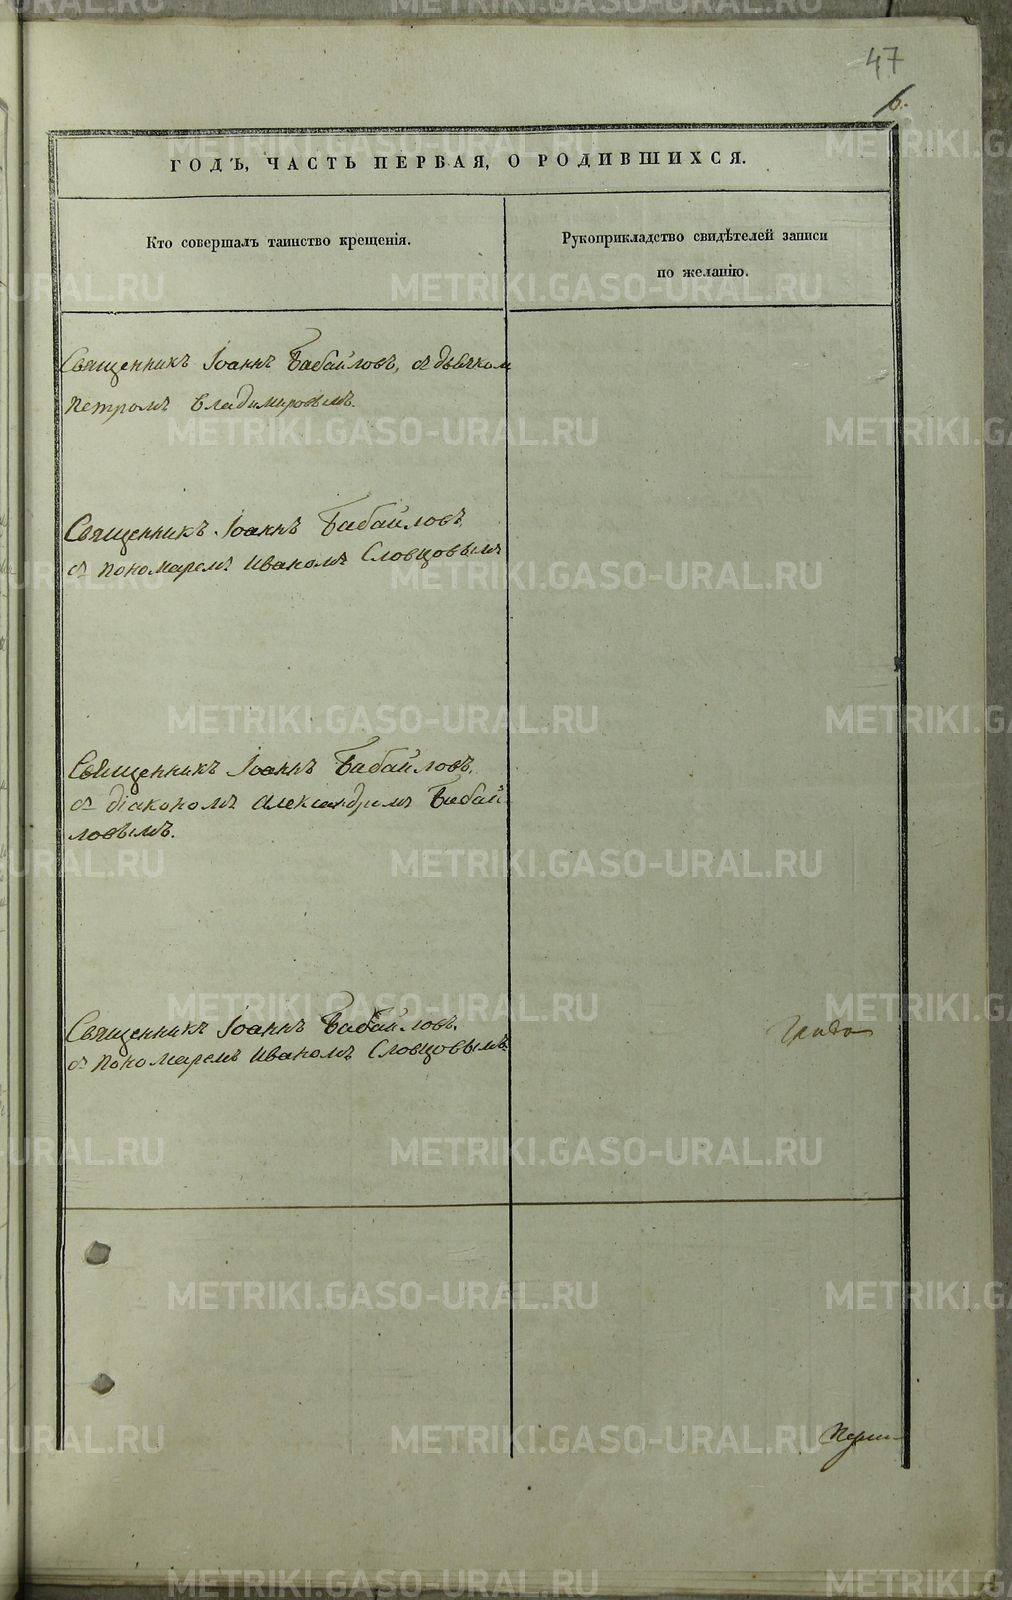 47
6.
ГОДЪ, ЧАСТЬ ПЕРВАЯ, О РОДИВШИХСЯ.
Кто совершалъ таинство крещенія.
Рукоприкладство свидѣтелей записи
по желанію.
Священникъ Іоаннъ Бабайловъ, съ дьячкомъ
Петромъ Владимировымъ.
Священникъ Іоаннъ Бабайловъ,
съ пономаремъ Иваномъ Словцовымъ
Священникъ Іоаннъ Бабайловъ,
съ діакономъ Александромъ Бабай
ловымъ.
Священникъ Іоаннъ Бабайловъ,
съ пономаремъ Иваномъ Словцовымъ.
METRIKI.GASO-URAL.RU